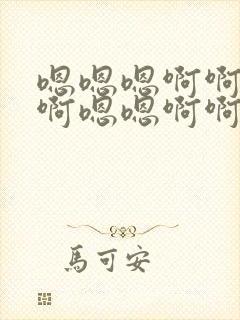 嗯嗯嗯啊啊
啊嗯嗯啊啊
馬可安